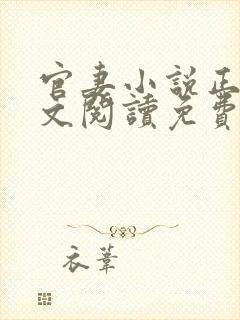 官妻小說正
文閱讀免費
衣葦